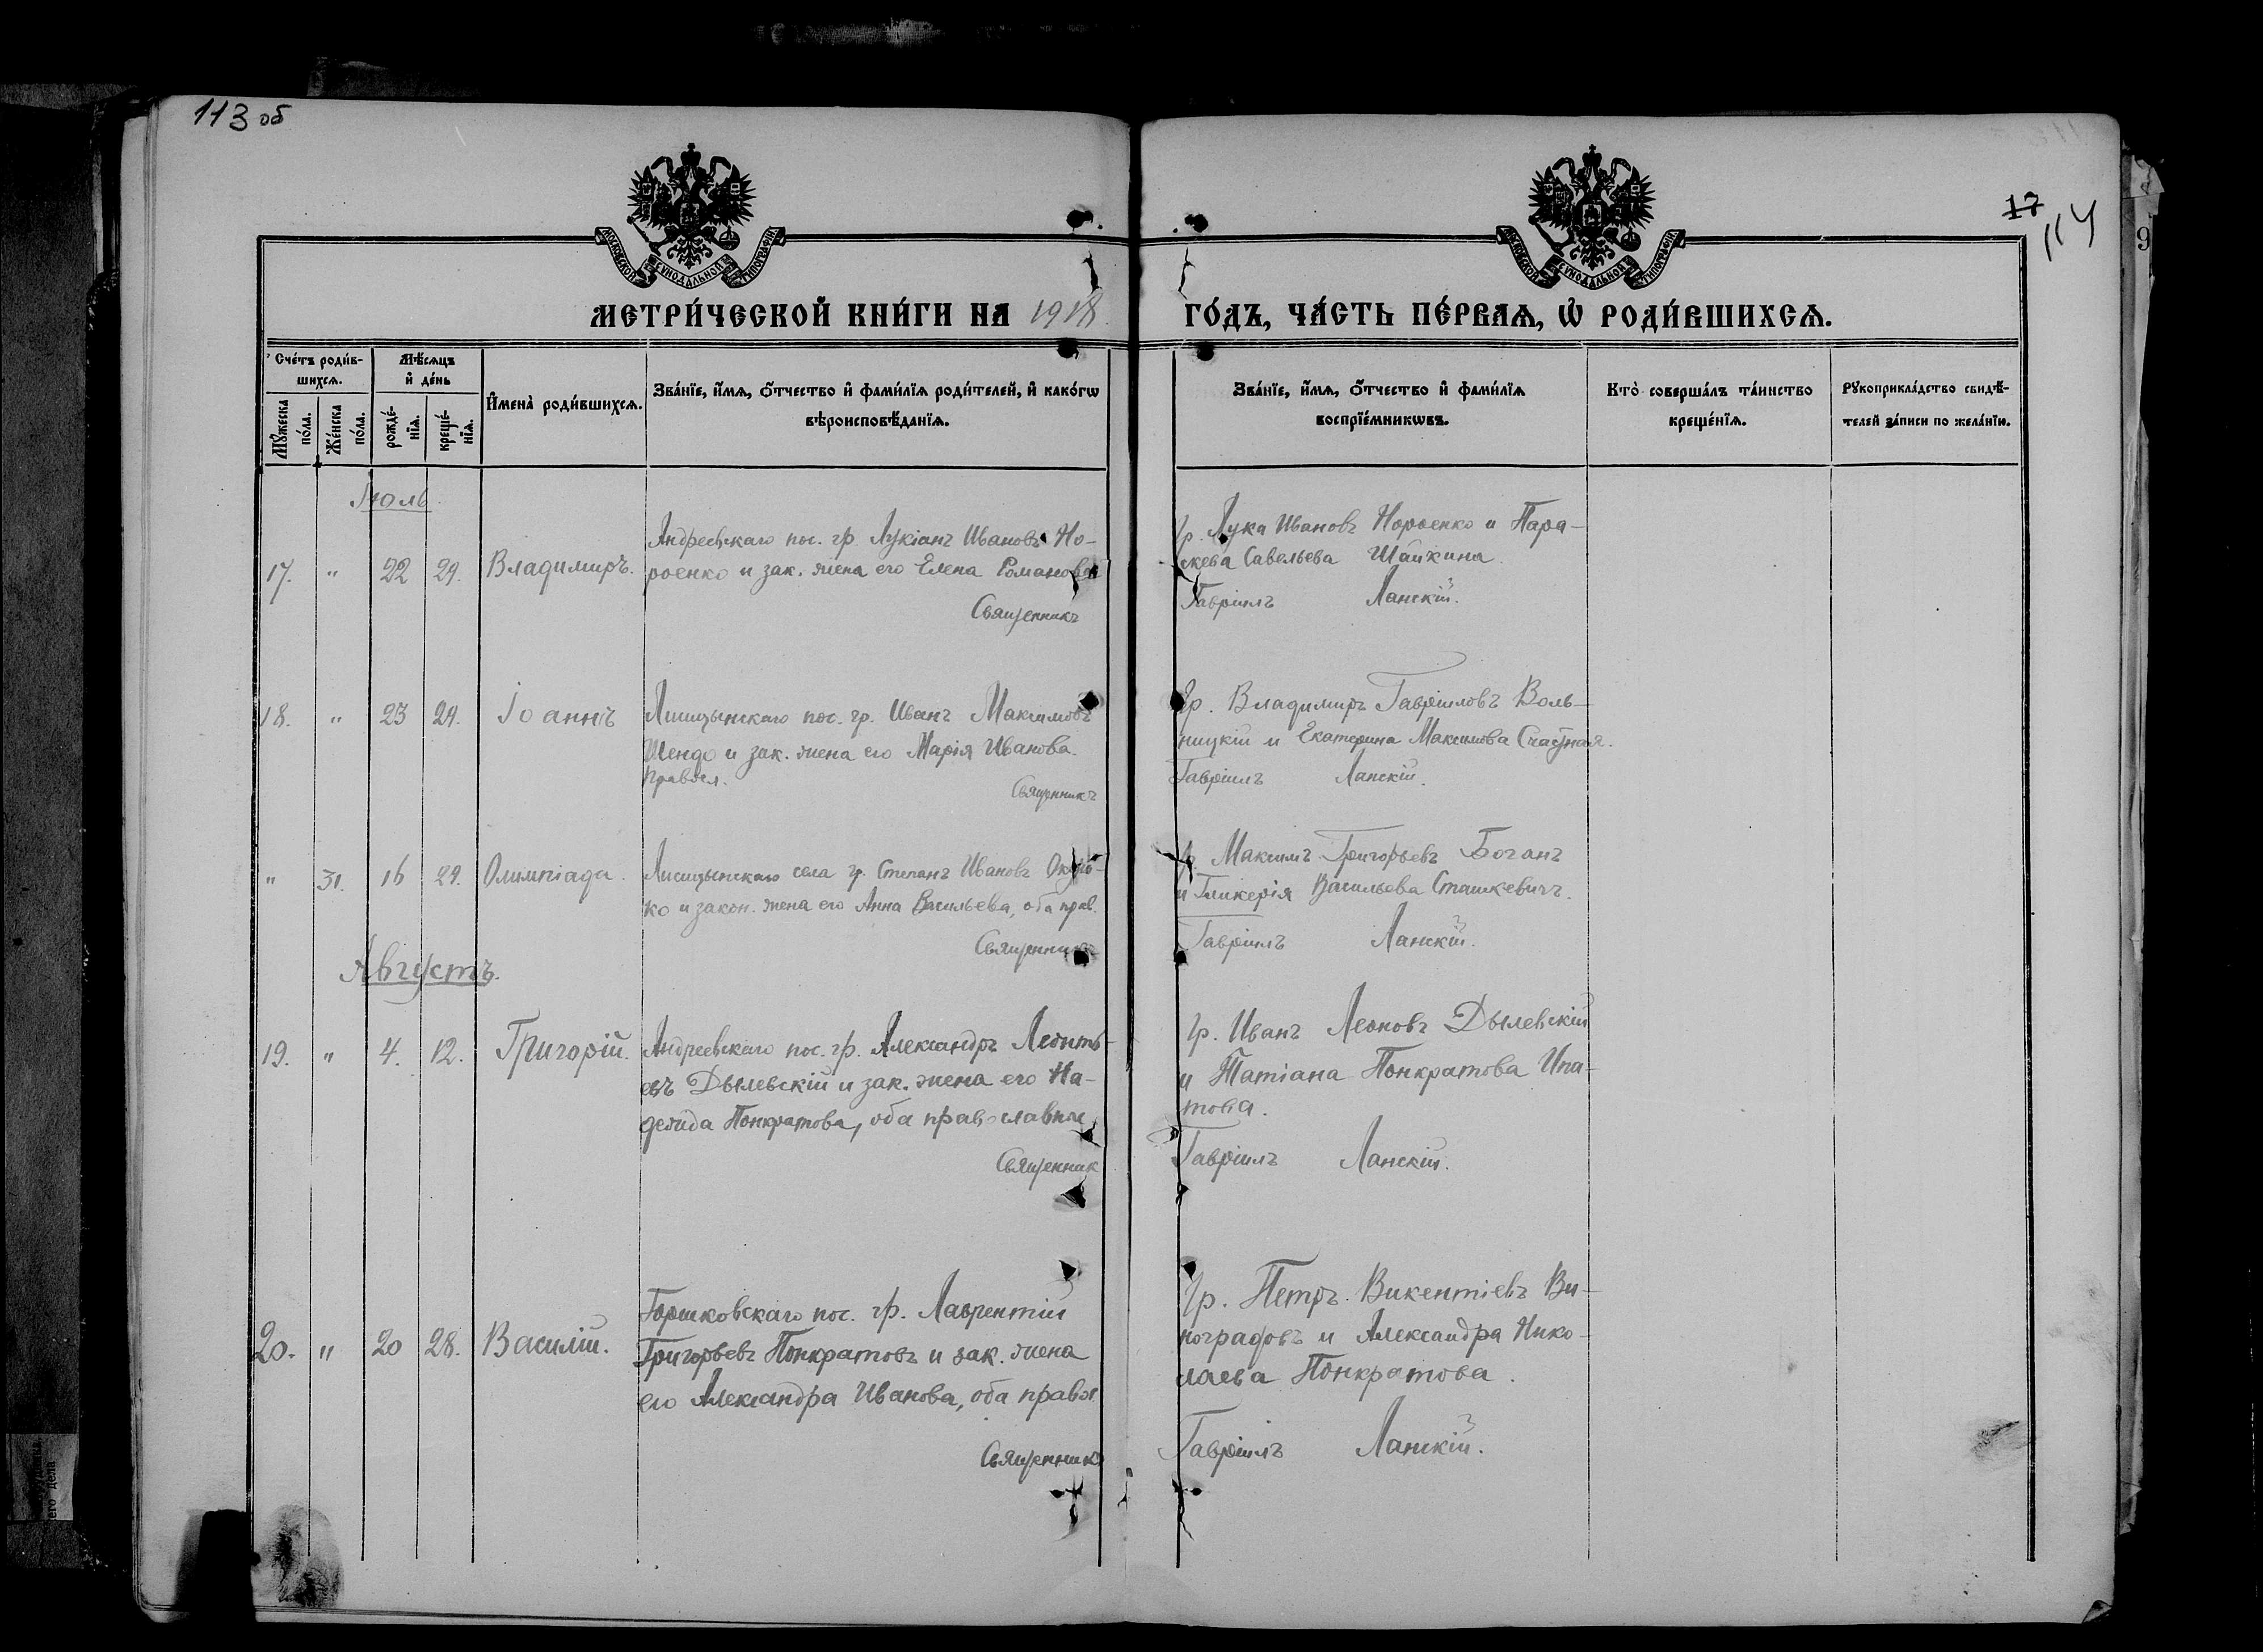 113 об
17
114
9
МОСКОВСКОЙ СУНОДАЛЬНОЙ ТИПОГРАФІИ
МОСКОВСКОЙ СУНОДАЛЬНОЙ ТИПОГРАФІИ
МЕТРИ́ЧЕСКОЙ КНИ́ГИ НА 1918 ГО́ДЪ, ЧА́СТЬ ПЕ́РВАѦ, Ѡ РОДИ́ВШИХСѦ.
Сче́тъ роди́в-
шихсѧ.
Мѣ́сѧцъ
и҆ де́нь
Мꙋ́жеска
по́ла.
Же́нска
по́ла.
рожде́-
нїѧ.
креще́-
нїѧ.
И҆мена̀ роди́вшихсѧ.
Зва́нїе, и҆́мѧ, ѻ҆́тчество и҆ фами́лїѧ роди́телей, и҆ како́гѡ
вѣроисповѣ́данїѧ.
Зва́нїе, и҆́мѧ, ѻ҆́тчество и҆ фами́лїѧ
воспрїе́мникѡвъ.
Кто̀ соверша́лъ та́инство
креще́нїѧ.
Рꙋкоприкла́дство свидѣ́-
телей за́писи по жела́нїю.
Іюль
17. " 22 29. Владимиръ.
Андреевскаго пос. гр. Лукіанъ Ивановъ Но-
роенко и зак. жена его Елена Романова
Священникъ
гр. Лука Ивановъ Нороенко и Пара-
скева Савельева Шайкина.
Гавріилъ Ланскій.
18. " 23 29. Іоаннъ
Лисицынскаго пос. гр. Иванъ Максимовъ
Шендо и зак. жена его Марія Иванова.
Правосл.
Священникъ
Гр. Владимиръ Гавріиловъ Воль-
ницкій и Екатерина Максимова Счастная.
Гавріилъ Ланскій.
" 31. 16 29. Олимпіада.
Лисицынскаго села гр. Степанъ Ивановъ
ко и закон. жена его Анна Васильева, оба прав.
Священникъ
гр Максимъ Григорьевъ Боганъ
и Гликерія Васильева Сташкевичъ.
Гавріилъ Ланскій.
Августъ.
19. " 4. 12. Григорій.
Андреевскаго пос. гр. Александръ Леонть-
евъ Дылевскій и зак. жена его На-
дежда Понкратова, оба православные
Священник
Гр. Иванъ Леоновъ Дылевскій
и Татіана Понкратова Ипа-
това.
Гавріилъ Ланскій.
20. " 20 28. Василій.
Горшковскаго пос. гр. Лаврентій
Григорьевъ Понкратовъ и зак. жена
его Александра Иванова, оба правос
Священникъ
Гр. Петръ Викентіевъ Ви-
ноградовъ и Александра Нико-
лаева Понкратова.
Гавріилъ Ланскій.
его дела